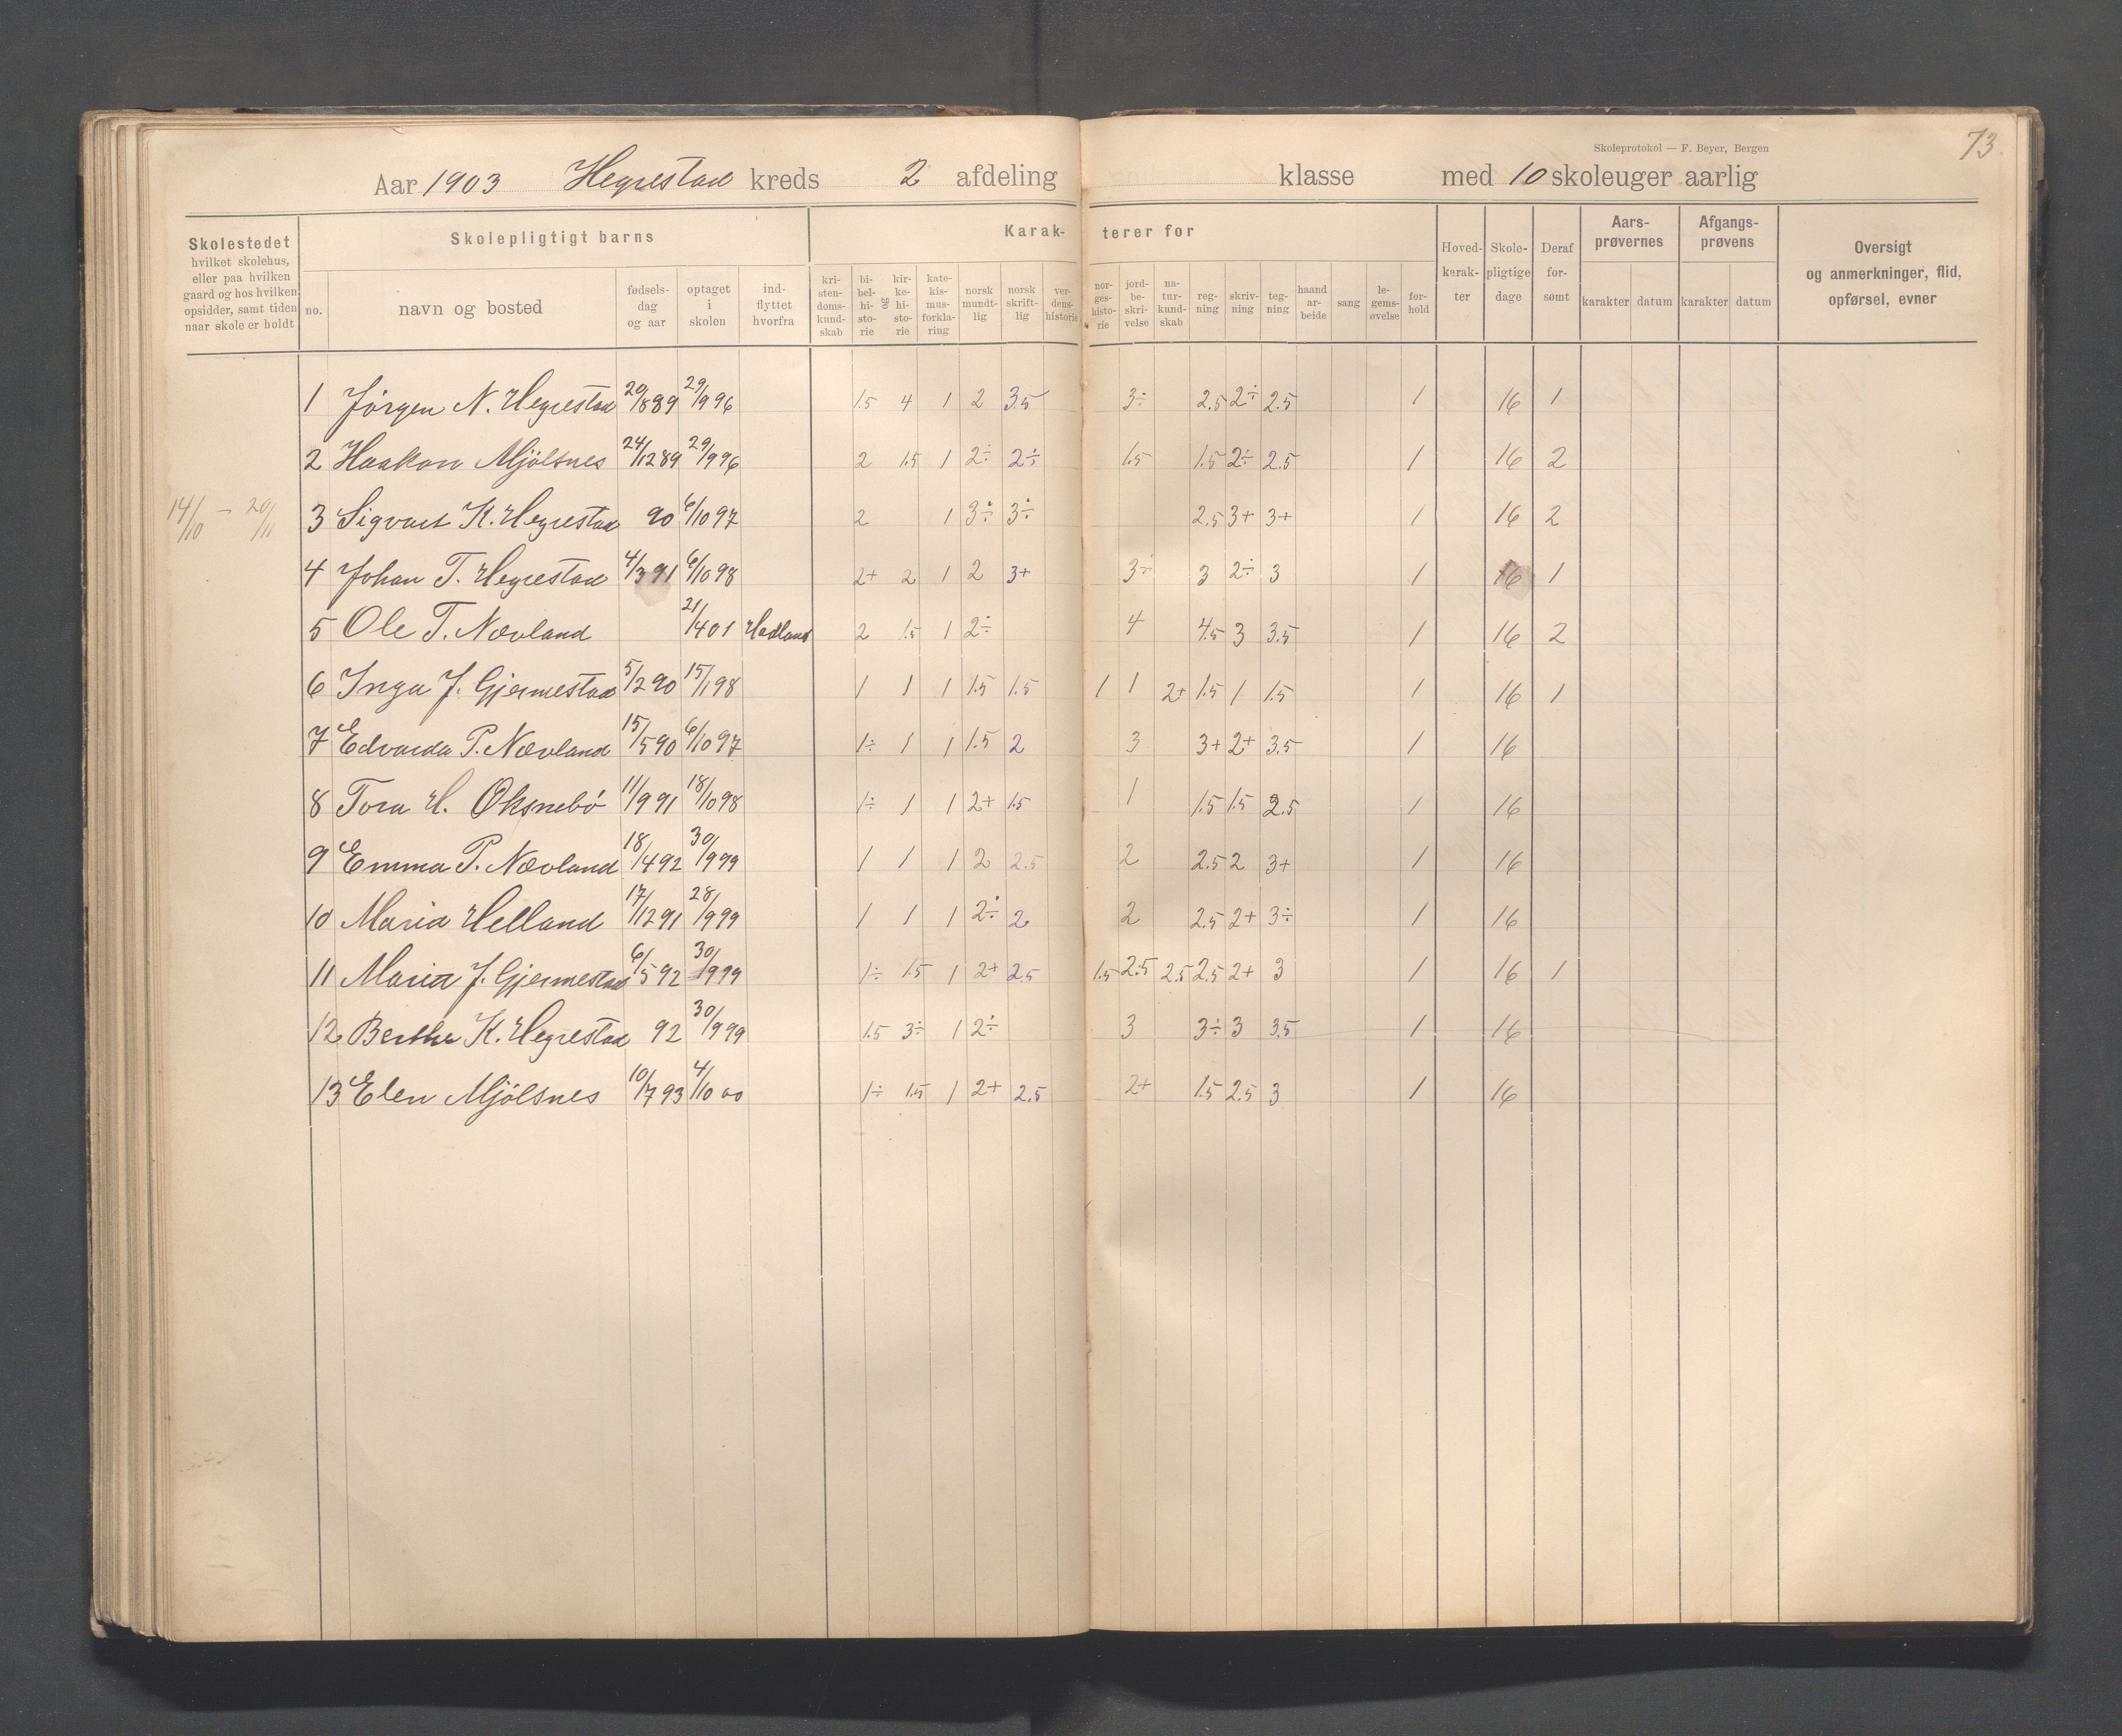 73
Skoleprotokol — F. Beyer, Bergen
Aar 1903 Hegrestad kreds 2 afdeling klasse med 10 skoleuger aarlig
Skolestedet hvilket skolehus, eller paa hvilken gaard og hos hvilken opsidder, samt tiden naar skole er holdt
Skolepligtigt barns
no. navn og bosted fødsels-dag og aar optaget i skolen ind-flyttet hvorfra
Karak-terer for
kri-sten-doms-kund-skab bi-bel-hi-sto-rie og kir-ke-hi-sto-rie kate-kis-mus-forkla-ring norsk mundt-lig norsk skrift-lig ver-dens-historie nor-ges-histo-rie jord-be-skri-velse na-tur-kund-skab reg-ning skriv-ning teg-ning haand ar-beide sang le-gems-øvelse for-hold
Hoved-karak-ter Skole-pligtige dage Deraf for-sømt
Aars-prøvernes karakter datum
Afgangs-prøvens karakter datum
Oversigt og anmerkninger, flid, opførsel, evner
1 Jörgen N. Hegrestad 20/8 89 29/9 96 1.5 4 1 2 3.5 3÷ 2.5 2÷ 2.5 1 16 1
2 Haakon Mjölsnes 24/12 89 29/9 96 2 1.5 1 2÷ 2÷ 1.5 1.5 2÷ 2.5 1 16 2
14/10 — 20/11 3 Sigvart K. Hegrestad 90 6/10 97 2 1 3÷ 3÷ 2.5 3+ 3+ 1 16 2
4 Johan T. Hegrestad 4/3 91 6/10 98 2+ 2 1 2 3+ 3÷ 3 2÷ 3 1 16 1
5 Ole T. Nævland 21/4 01 Hadland 2 1.5 1 2÷ 4 4.5 3 3.5 1 16 2
6 Inga J. Gjermestad 5/2 90 15/1 98 1 1 1 1.5 1.5 1 1 2+ 1.5 1 1.5 1 16 1
7 Edvarda P. Nævland 15/5 90 6/10 97 1÷ 1 1 1.5 2 3 3+ 2+ 3.5 1 16
8 Tora H. Øksnebö 11/9 91 18/10 98 1÷ 1 1 2+ 1.5 1 1.5 1.5 2.5 1 16
9 Emma P. Nævland 18/4 92 30/9 99 1 1 1 2 2.5 2 2.5 2 3+ 1 16
10 Maria Helland 17/12 91 28/9 99 1 1 1 2÷ 2 2 2.5 2+ 3÷ 1 16
11 Maria J. Gjermestad 6/5 92 30/9 99 1÷ 1.5 1 2+ 2.5 1.5 2.5 2.5 2.5 2+ 3 1 16 1
12 Berthe K. Hegrestad 92 30/9 99 1.5 3÷ 1 2÷ 3 3÷ 3 3.5 1 16
13 Elen Mjölsnes 10/7 93 4/10 00 1÷ 1.5 1 2+ 2.5 2+ 1.5 2.5 3 1 16